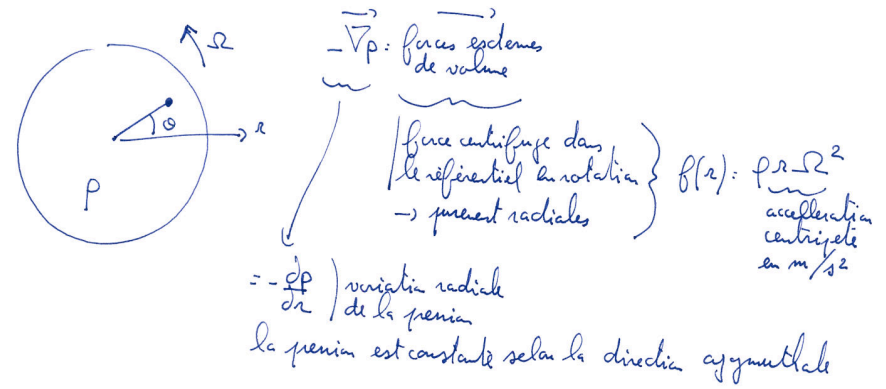 Ω
-∇p : forces externes
de volume
θ
r
ρ
force centrifuge dans
le référentiel en rotation
→ purement radiales
f(r) : ρ r Ω²
accélleration
centripète
en m/s²
= - dp/dr
variation radiale
de la pression
la pression est constante selon la direction azymuthale